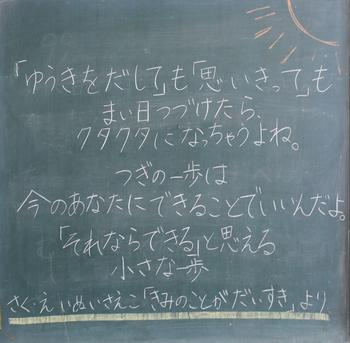 「ゆうきをだして」も「思いきって」も
まい日つづけたら、
クタクタになっちゃうよね。
つぎの一歩は
今のあなたにできることでいいんだよ。
「それならできる」と思える
小さな一歩
さく・え いぬいさえこ「きみのことがだいすき」より